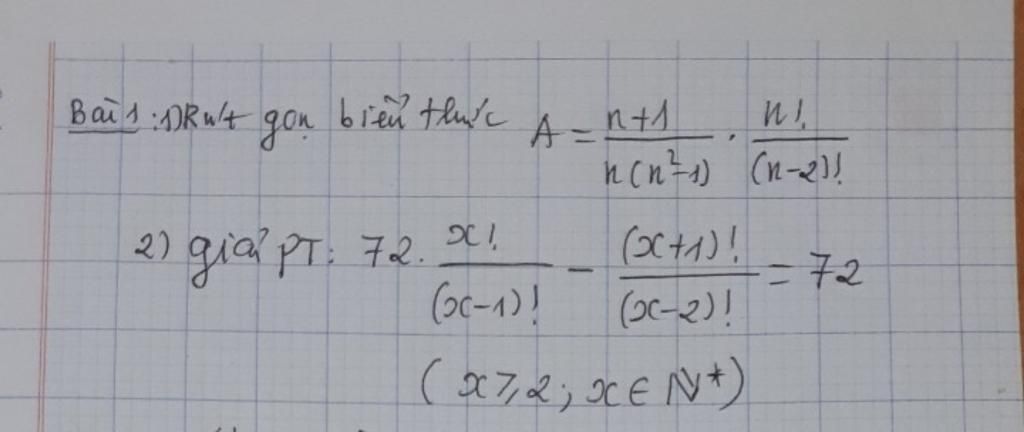 Bài 1: 1) Rút gọn biểu thức A = \frac{n+1}{n(n^2-1)} \cdot \frac{n!}{(n-2)!}
2) giải PT: 72. \frac{x!}{(x-1)!} - \frac{(x+1)!}{(x-2)!} = 72
(x ⩾ 2; x ∈ ℕ*)